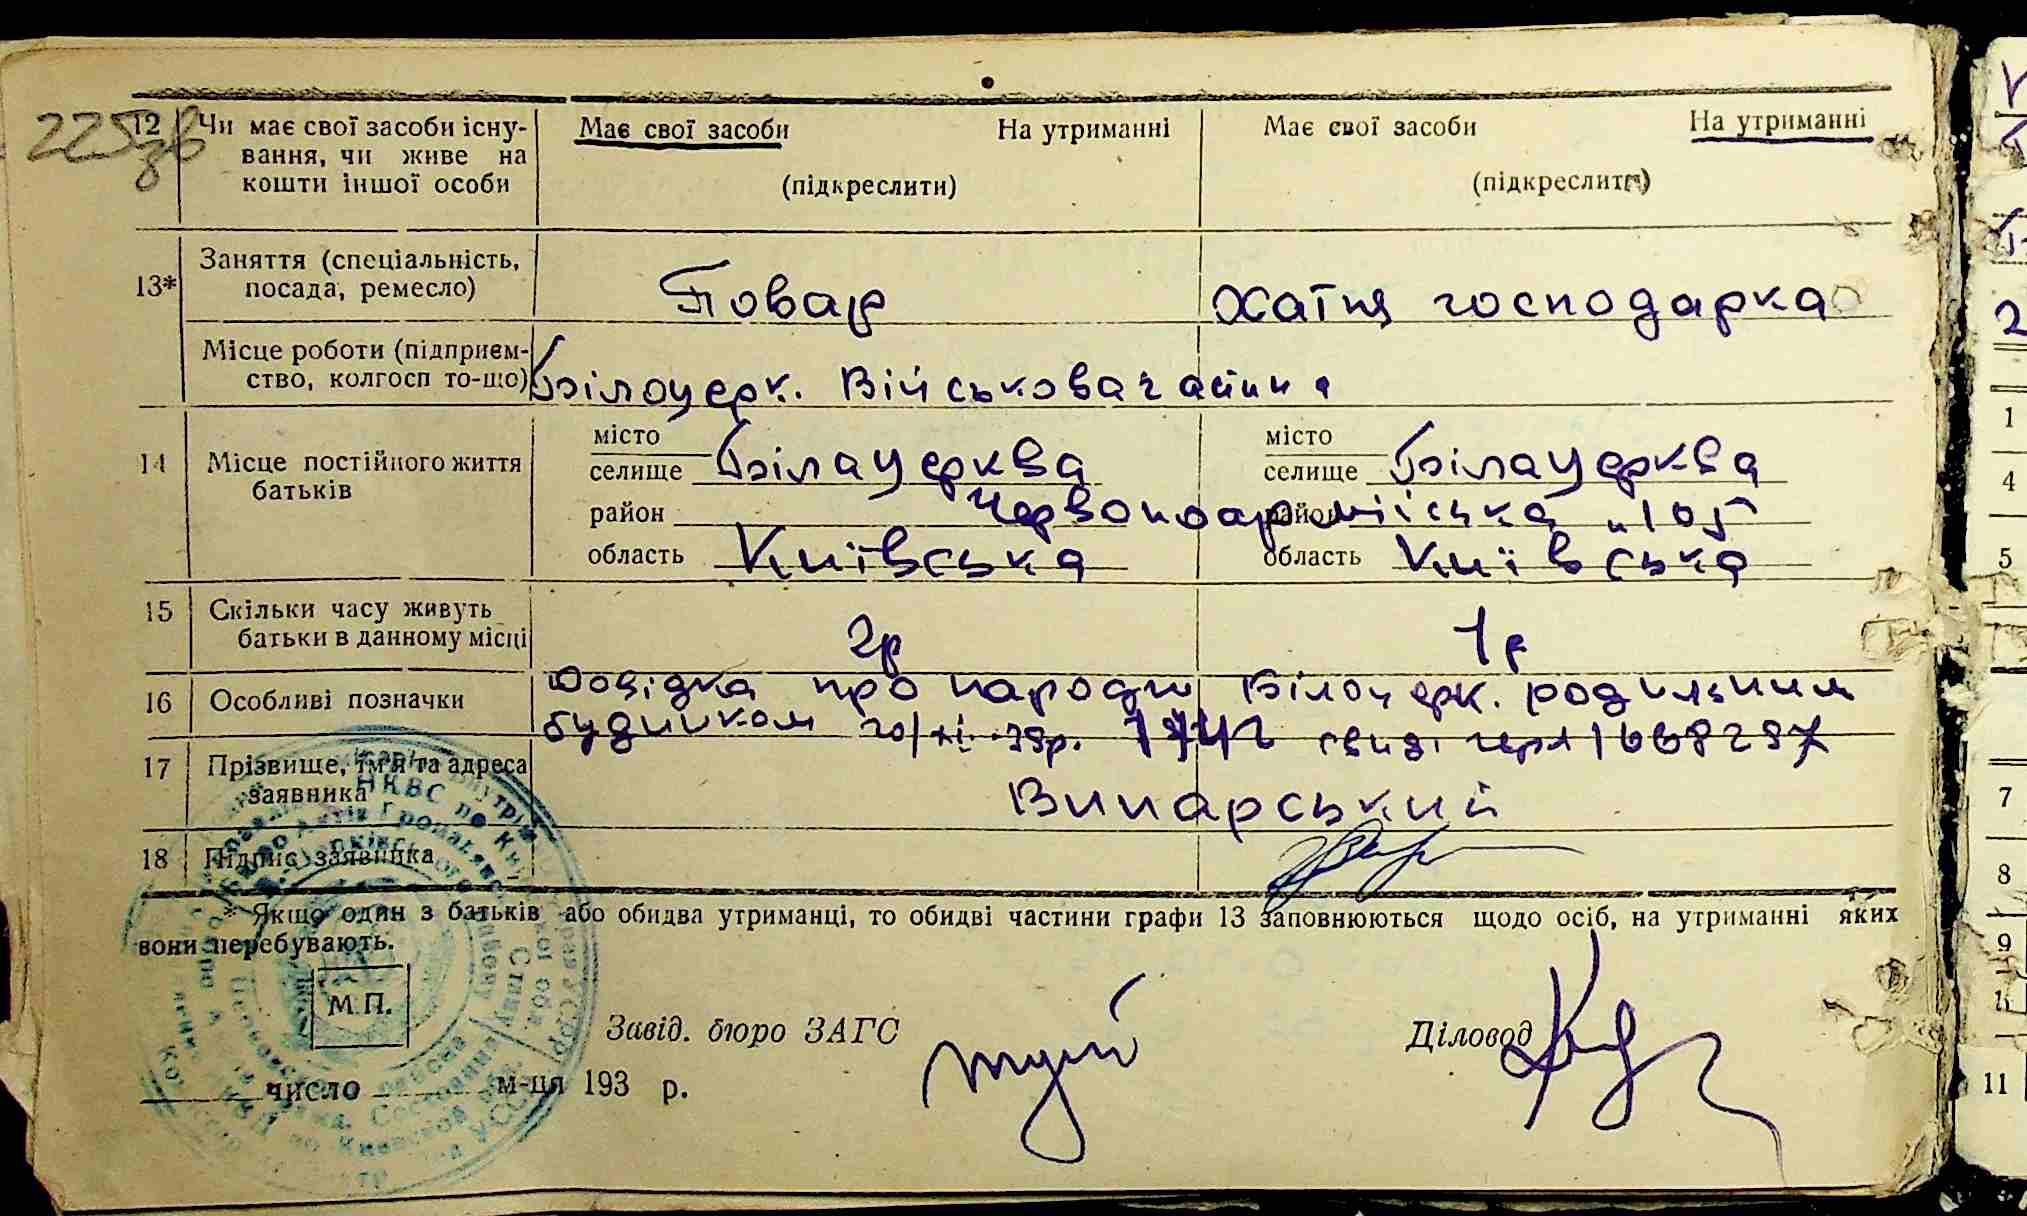 225 зв
12 Чи має свої засоби існу- Має свої засоби На утриманні Має свої засоби На утриманні
вання, чи живе на
кошти іншої особи (підкреслити) (підкреслити)
13* Заняття (спеціальність,
посада, ремесло) Повар Хатня господарка
Місце роботи (підприєм-
ство, колгосп то-що) Білоцерк. Військова частина
14 Місце постійного життя
батьків
місто місто
селище Білацерква селище Білацерква
район Червоноармійська 105 район
область Київська область Київська
15 Скільки часу живуть
батьки в данному місці 2р 1р
16 Особливі позначки Довідка про народж Білоцерк. родильним
будинком 20/XI-39р. свид.
17 Прізвище, ім'я та адреса
заявника Винарський
18 Підпис заявника
* Якщо один з батьків або обидва утриманці, то обидві частини графи 13 заповнюються щодо осіб, на утриманні яких
вони перебувають.
М.П.
Завід. бюро ЗАГС Діловод
число м-ця 193 р.
НКВС по Київської обл.
2
1
4
5
7
8
9
11